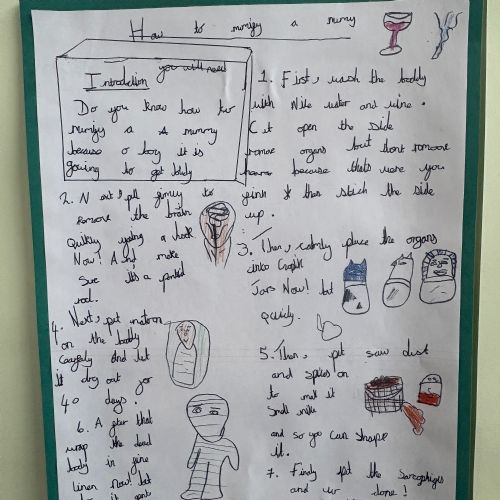 How to mumify a mumy
you will need
Introduction
Do you know how to
mumify a A mummy
because o boy it is
gowing to get bludy
1. First, wash the boddy
with Nile water and wine.
Cut open the side
romove organs but dont romoove
because thats were you
think * then stich the side
up.
2. Next, pull gimuy to
romove the brain
Quikly using a hook
Now! And make
Sure it's a pointid
tool.
3. Then, calmly place the organs
into
Jars Now! but
Quickly.
4. Next, put natron
on the boddy
Carefuly and let
it dry out for
40 days.
5. Then, put saw dust
and spices on
to mak it
Smell nise
and so you can shape
it.
6. After that
wrap the dead
body in fine
linen Now! but
7. Finaly put the
and